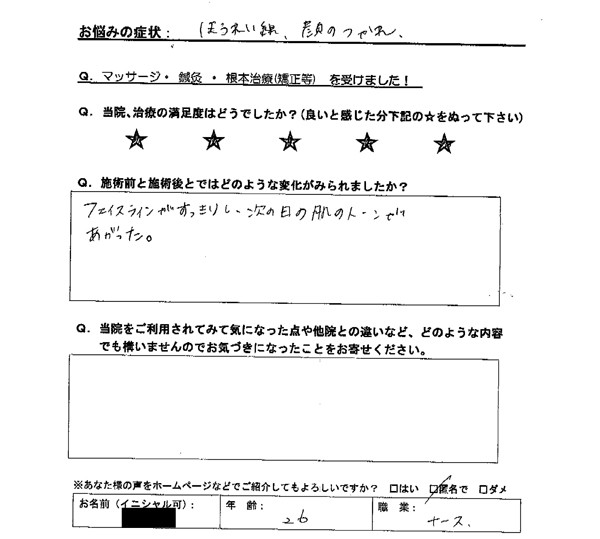 お悩みの症状： ほうれい線、顔のつかれ、
Q．マッサージ・ 鍼灸 ・ 根本治療(矯正等) を受けました！
Q．当院、治療の満足度はどうでしたか？(良いと感じた分下記の☆をぬって下さい)
★ ★ ★ ★ ★
Q．施術前と施術後とではどのような変化がみられましたか？
フェイスラインがすっきりし、次の日の肌のトーンが
あがった。
Q．当院をご利用されてみて気になった点や他院との違いなど、どのような内容
でも構いませんのでお気づきになったことをお寄せください。
※あなた様の声をホームページなどでご紹介してもよろしいですか？ □はい □匿名で □ダメ
お名前（イニシャル可）： 年 齢： 26 職 業： ナース、